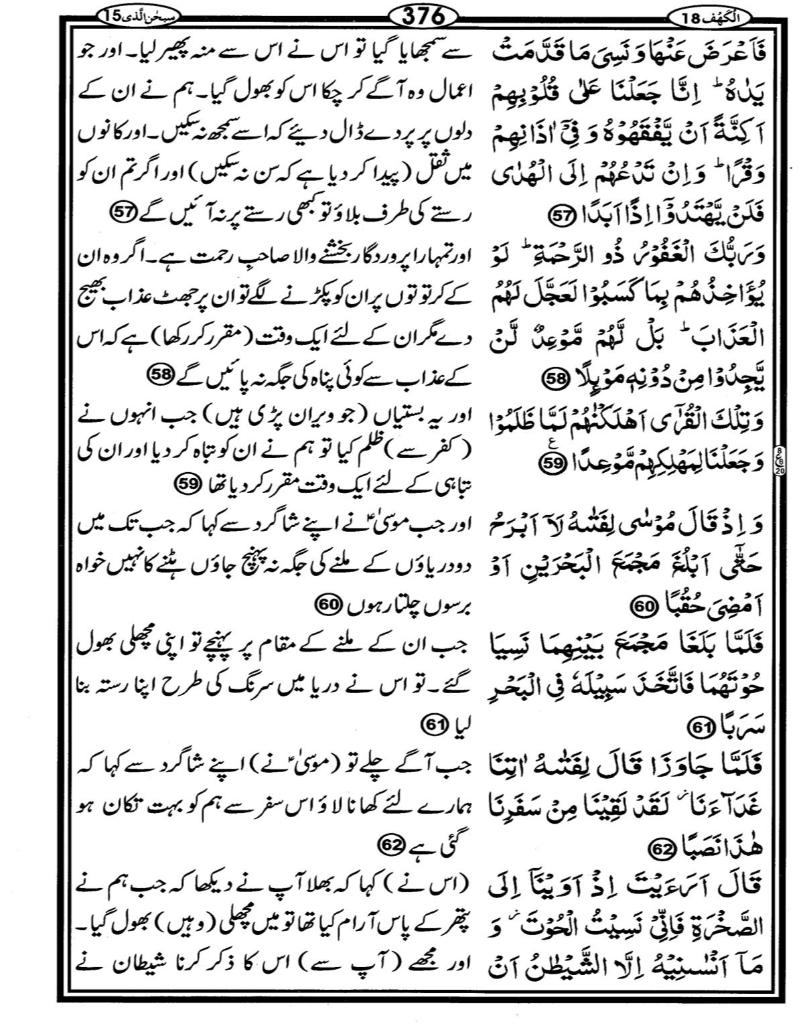 الكهف 18
376
سبحن الذى 15
فَاَعْرَضَ عَنْهَا وَنَسِىَ مَا قَدَّمَتْ
يَدٰهُ ؕ اِنَّا جَعَلْنَا عَلٰى قُلُوْبِهِمْ
اَكِنَّةً اَنْ يَّفْقَهُوْهُ وَفِىْۤ اٰذَانِهِمْ
وَقْرًا ؕ وَاِنْ تَدْعُهُمْ اِلَى الْهُدٰى
فَلَنْ يَّهْتَدُوْۤا اِذًا اَبَدًا 57
وَرَبُّكَ الْغَفُوْرُ ذُو الرَّحْمَةِ ؕ لَوْ
يُؤَاخِذُهُمْ بِمَا كَسَبُوْا لَعَجَّلَ لَهُمُ
الْعَذَابَ ؕ بَلْ لَّهُمْ مَّوْعِدٌ لَّنْ
يَّجِدُوْا مِنْ دُوْنِهٖ مَوْئِلًا 58
وَتِلْكَ الْقُرٰٓى اَهْلَكْنٰهُمْ لَمَّا ظَلَمُوْا
وَجَعَلْنَا لِمَهْلِكِهِمْ مَّوْعِدًا 59 ع
وَاِذْ قَالَ مُوْسٰى لِفَتٰٮهُ لَاۤ اَبْرَحُ
حَتّٰۤى اَبْلُغَ مَجْمَعَ الْبَحْرَيْنِ اَوْ
اَمْضِىَ حُقُبًا 60
فَلَمَّا بَلَغَا مَجْمَعَ بَيْنِهِمَا نَسِيَا
حُوْتَهُمَا فَاتَّخَذَ سَبِيْلَهٗ فِى الْبَحْرِ
سَرَبًا 61
فَلَمَّا جَاوَزَا قَالَ لِفَتٰٮهُ اٰتِنَا
غَدَآءَنَا لَقَدْ لَقِيْنَا مِنْ سَفَرِنَا
هٰذَا نَصَبًا 62
قَالَ اَرَءَيْتَ اِذْ اَوَيْنَاۤ اِلَى
الصَّخْرَةِ فَاِنِّىْ نَسِيْتُ الْحُوْتَ وَ
مَاۤ اَنْسٰٮنِيْهُ اِلَّا الشَّيْطٰنُ اَنْ
سے سمجھایا گیا تو اس نے اس سے منہ پھیر لیا۔ اور جو
اعمال وہ آگے کر چکا اس کو بھول گیا۔ ہم نے ان کے
دلوں پر پردے ڈال دیئے کہ اسے سمجھ نہ سکیں۔ اور کانوں
میں ثقل (پیدا کر دیا ہے کہ سن نہ سکیں) اور اگر تم ان کو
رستے کی طرف بلاؤ تو کبھی رستے پر نہ آئیں گے 57
اور تمہارا پروردگار بخشنے والا صاحبِ رحمت ہے۔ اگر وہ ان
کے کرتوتوں پر ان کو پکڑنے لگے تو ان پر جھٹ عذاب بھیج
دے مگر ان کے لئے ایک وقت (مقرر کر رکھا) ہے کہ اس
کے عذاب سے کوئی پناہ کی جگہ نہ پائیں گے 58
اور یہ بستیاں (جو ویران پڑی ہیں) جب انہوں نے
(کفر سے) ظلم کیا تو ہم نے ان کو تباہ کر دیا اور ان کی
تباہی کے لئے ایک وقت مقرر کر دیا تھا 59
اور جب موسیٰؑ نے اپنے شاگرد سے کہا کہ جب تک میں
دو دریاؤں کے ملنے کی جگہ نہ پہنچ جاؤں ہٹنے کا نہیں خواہ
برسوں چلتا رہوں 60
جب ان کے ملنے کے مقام پر پہنچے تو اپنی مچھلی بھول
گئے۔ تو اس نے دریا میں سرنگ کی طرح اپنا رستہ بنا
لیا 61
جب آگے چلے تو (موسیٰؑ نے) اپنے شاگرد سے کہا کہ
ہمارے لئے کھانا لاؤ اس سفر سے ہم کو بہت تکان ہو
گئی ہے 62
(اس نے) کہا کہ بھلا آپ نے دیکھا کہ جب ہم نے
پتھر کے پاس آرام کیا تھا تو میں مچھلی (وہیں) بھول گیا۔
اور مجھے (آپ سے) اس کا ذکر کرنا شیطان نے